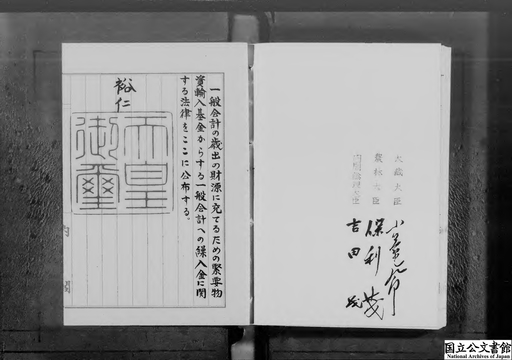 一般会計の歳出の財源に充てるための緊要物
資輸入基金からする一般会計への繰入金に関
する法律をここに公布する。
裕仁
天皇
御璽
大蔵大臣
農林大臣
内閣総理大臣
保利茂
吉田茂
国立公文書館
National Archives of Japan